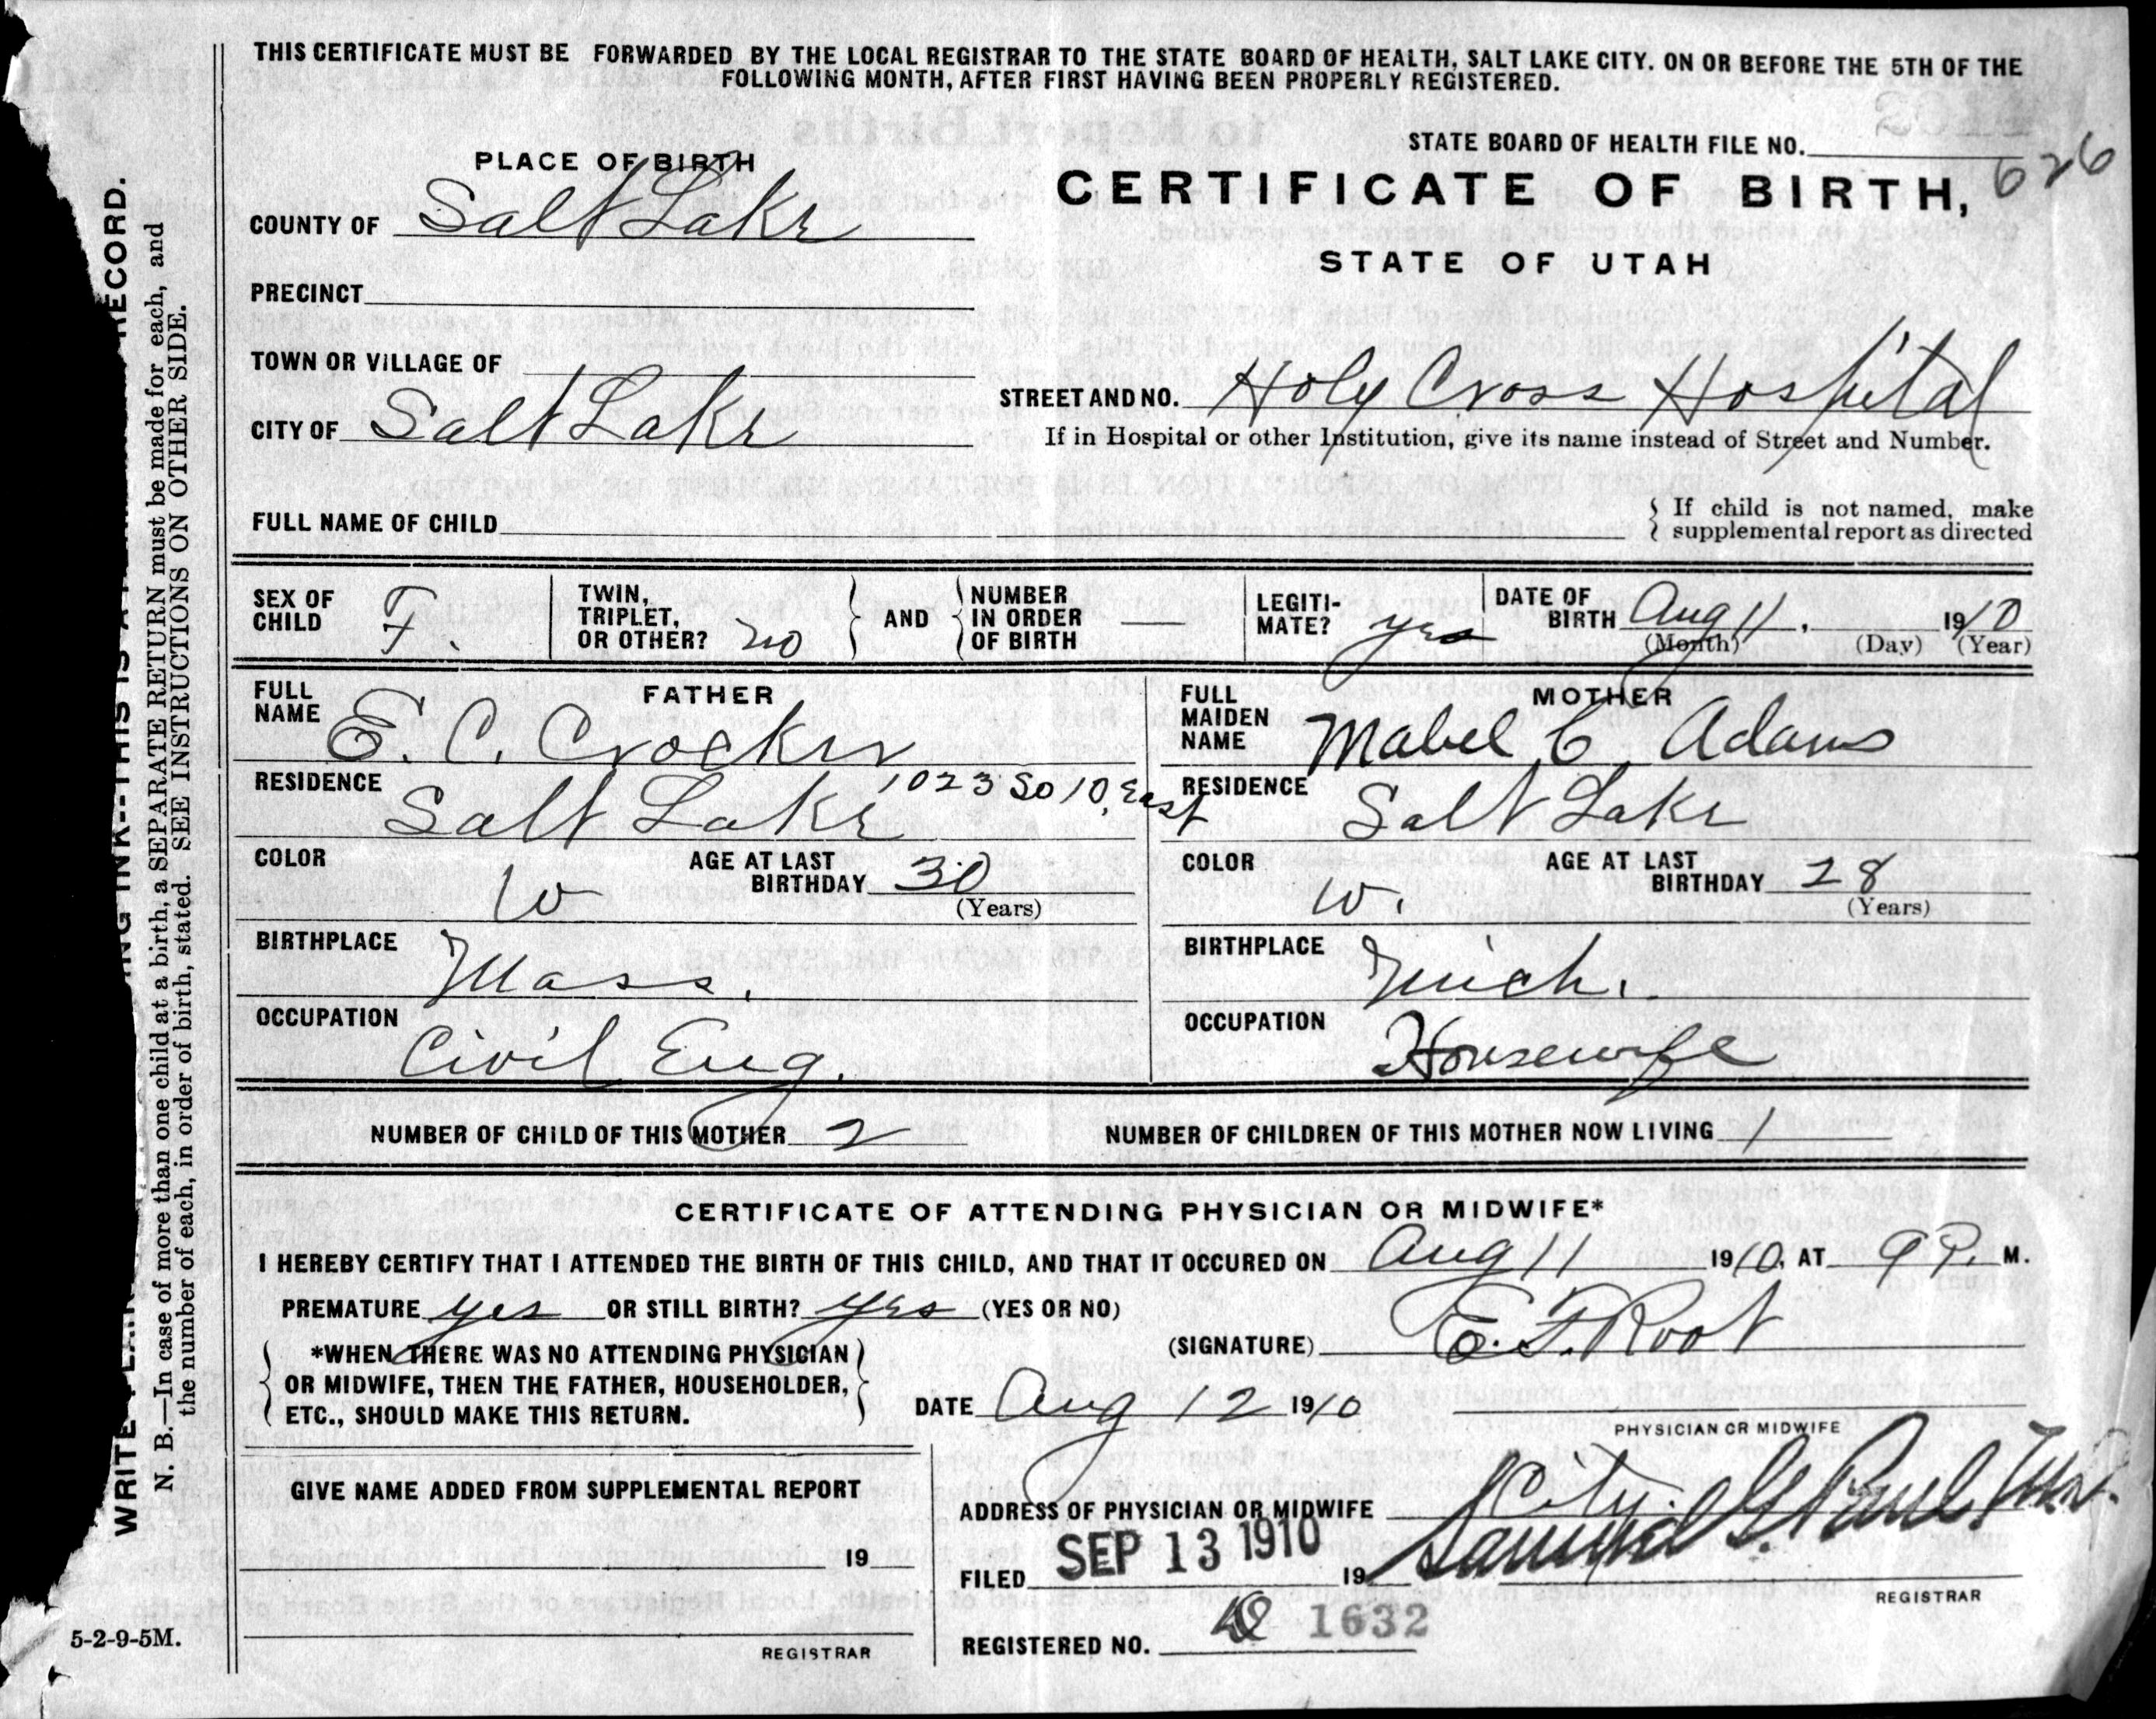 THIS CERTIFICATE MUST BE FORWARDED BY THE LOCAL REGISTRAR TO THE STATE BOARD OF HEALTH, SALT LAKE CITY. ON OR BEFORE THE 5TH OF THE
FOLLOWING MONTH, AFTER FIRST HAVING BEEN PROPERLY REGISTERED.
STATE BOARD OF HEALTH FILE NO.
626
PLACE OF BIRTH
CERTIFICATE OF BIRTH,
STATE OF UTAH
COUNTY OF Salt Lake
PRECINCT
TOWN OR VILLAGE OF
STREET AND NO. Holy Cross Hospital
CITY OF Salt Lake
If in Hospital or other Institution, give its name instead of Street and Number.
FULL NAME OF CHILD
If child is not named, make
supplemental report as directed
SEX OF CHILD F.
TWIN, TRIPLET, OR OTHER? no
AND
NUMBER IN ORDER OF BIRTH —
LEGITI-MATE? yes
DATE OF BIRTH Aug 11, 1910
(Month) (Day) (Year)
FATHER
FULL NAME E. C. Crocker
RESIDENCE Salt Lake 1023 So 10, East
COLOR W
AGE AT LAST BIRTHDAY 30
(Years)
BIRTHPLACE Mass.
OCCUPATION Civil Eng.
MOTHER
FULL MAIDEN NAME Mabel C Adams
RESIDENCE Salt Lake
COLOR W.
AGE AT LAST BIRTHDAY 28
(Years)
BIRTHPLACE Mich.
OCCUPATION Housewife
NUMBER OF CHILD OF THIS MOTHER 2
NUMBER OF CHILDREN OF THIS MOTHER NOW LIVING 1
CERTIFICATE OF ATTENDING PHYSICIAN OR MIDWIFE*
I HEREBY CERTIFY THAT I ATTENDED THE BIRTH OF THIS CHILD, AND THAT IT OCCURED ON Aug 11 1910, AT 9 P. M.
PREMATURE yes OR STILL BIRTH? yes (YES OR NO)
(SIGNATURE) E. F. Root
*WHEN THERE WAS NO ATTENDING PHYSICIAN
OR MIDWIFE, THEN THE FATHER, HOUSEHOLDER,
ETC., SHOULD MAKE THIS RETURN.
DATE Aug 12 1910
PHYSICIAN OR MIDWIFE
GIVE NAME ADDED FROM SUPPLEMENTAL REPORT
19
REGISTRAR
ADDRESS OF PHYSICIAN OR MIDWIFE City.
FILED SEP 13 1910 19
Samuel G. Paul
REGISTRAR
REGISTERED NO. 1632
5-2-9-5M.
RECORD.
INK--THIS IS A
WRITE
N. B.—In case of more than one child at a birth, a SEPARATE RETURN must be made for each, and
the number of each, in order of birth, stated. SEE INSTRUCTIONS ON OTHER SIDE.